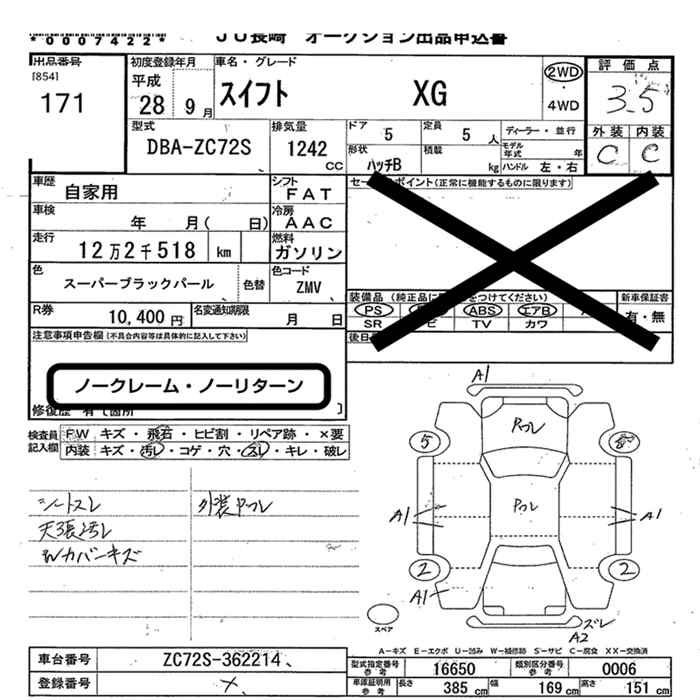 *0007422*
JU長崎 オークション出品申込書
出品番号
[854]
171
初度登録年月
平成
28 9月
車名・グレード
スイフト XG
2WD
・
4WD
評価点
3.5
外装 内装
C C
型式
DBA-ZC72S
排気量
1242
CC
ドア 5
定員 5 人
ディーラー・並行
形状
ハッチB
積載
kg
モデル年式 年
ハンドル 左・右
車歴
自家用
シフト
FAT
車検
年 月( 日)
冷房
AAC
走行
12万2千518 km
燃料
ガソリン
色
スーパーブラックパール
色替
色コード
ZMV
R券
10,400円
名変通知期限
月 日
ポイント(正常に機能するものに限ります)
装備品
PS ABS エアB
SR TV カワ
新車保証書
有・無
注意事項申告欄(不具合内容等は具体的に記入して下さい)
ノークレーム・ノーリターン
検査員記入欄
F/W キズ・飛石・ヒビ割・リペア跡・×要
内装 キズ・汚レ・コゲ・穴・スレ・キレ・破レ
シートスレ
天張汚レ
Wカバーキズ
外装Pフレ
A1
Pフレ
5
8
Pフレ
A1
A1
2
2
A1
スペア
ズレ
A2
A-キズ E-エクボ U-凹み W-補修跡 S-サビ C-腐食 XX-交換済
車台番号
ZC72S-362214
登録番号
型式指定番号参考
16650
類別区分番号参考
0006
車庫証明用参考
長さ 385 cm
幅 169 cm
高さ 151 cm